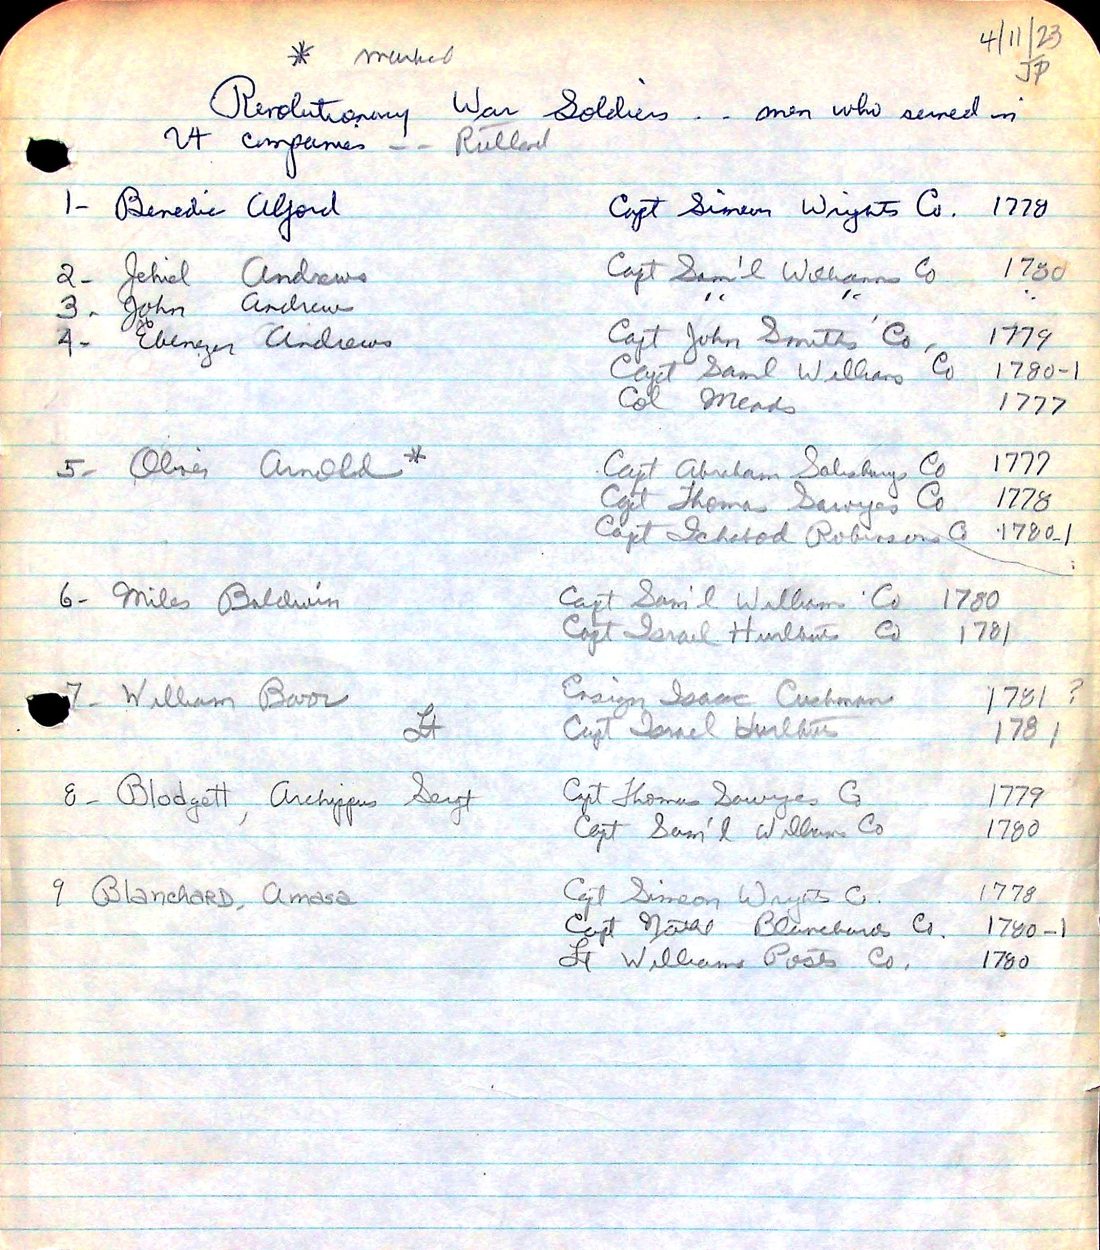 4/11/23
JP
* marked
Revolutionary War Soldiers . . - men who served in
Vt companies -- Rutland
1- Benedic Alford Capt Simeon Wrights Co. 1778
2- Jehiel Andrews Capt Sam'l Williams Co 1780
3. John Andrews " " "
4- Ebenezer Andrews Capt John Smiths Co, 1779
Capt Saml Williams Co 1780-1
Col Meads 1777
5- Oliver Arnold * Capt Abraham Salisburys Co 1777
Capt Thomas Sawyes Co 1778
Capt Ichabod Robinsons Co 1780-1
6- Miles Baldwin Capt Sam'l Williams Co 1780
Capt Israel Hurlbuts Co 1781
7- William Ensign Isaac Cushman 1781 ?
Lt Capt Israel Hurlbuts 1781
8- Blodgett, Archippus Sergt Cpt Thomas Sawyes Co 1779
Capt Sam'l Williams Co 1780
9 Blanchard, Amasa Cpt Simeon Wrights Co. 1778
Capt Nathl Blanchards Co. 1780-1
Lt Williams Posts Co. 1780